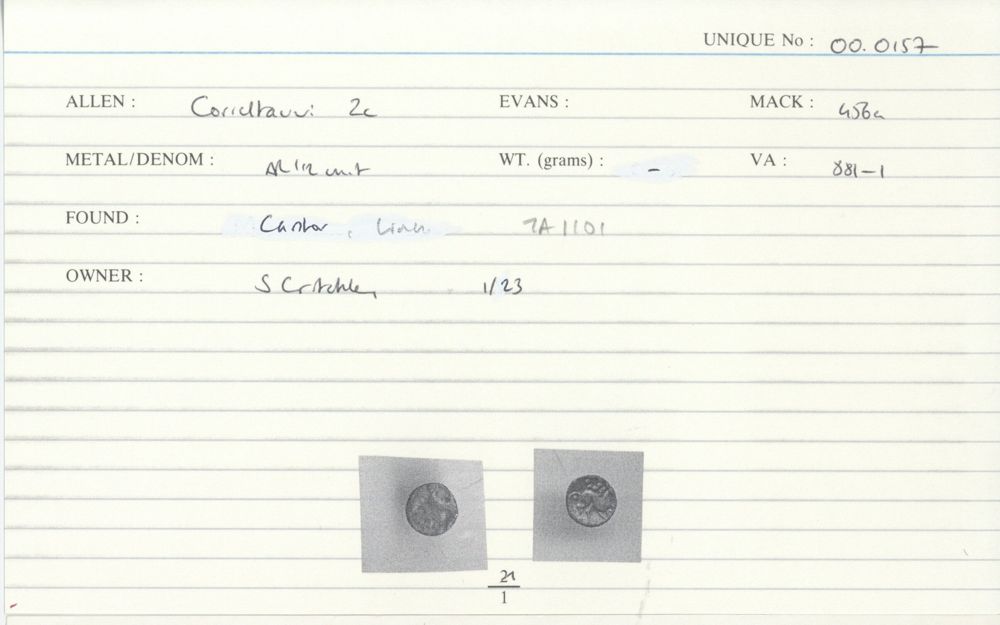 UNIQUE No : 00.0157
ALLEN : Corieltauvi 2c EVANS : MACK : 456a
METAL/DENOM : AR 1/2 unit WT. (grams) : - VA : 881-1
FOUND : Caistor, Lincs TA 1101
OWNER : S Critchley 1/23
21
1